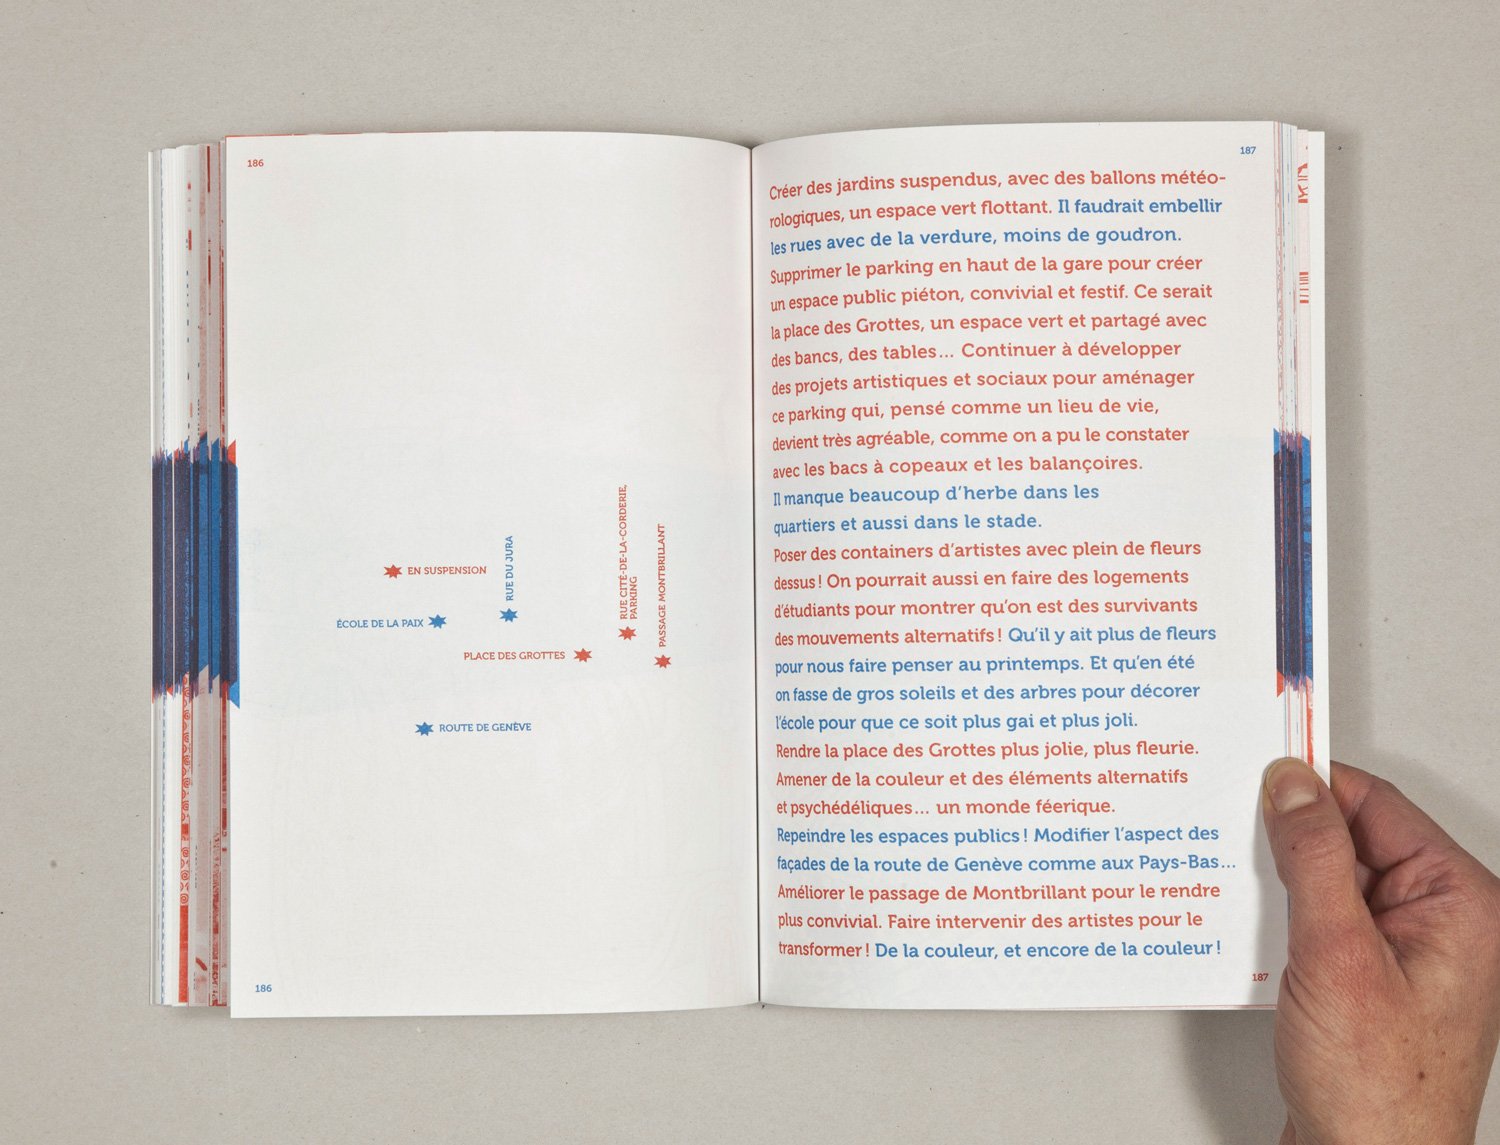 186
RUE CITÉ-DE-LA-CORDERIE,
PARKING
PASSAGE MONTBRILLANT
RUE DU JURA
EN SUSPENSION
ÉCOLE DE LA PAIX
PLACE DES GROTTES
ROUTE DE GENÈVE
186
187
Créer des jardins suspendus, avec des ballons météo-
rologiques, un espace vert flottant. Il faudrait embellir
les rues avec de la verdure, moins de goudron.
Supprimer le parking en haut de la gare pour créer
un espace public piéton, convivial et festif. Ce serait
la place des Grottes, un espace vert et partagé avec
des bancs, des tables... Continuer à développer
des projets artistiques et sociaux pour aménager
ce parking qui, pensé comme un lieu de vie,
devient très agréable, comme on a pu le constater
avec les bacs à copeaux et les balançoires.
Il manque beaucoup d'herbe dans les
quartiers et aussi dans le stade.
Poser des containers d'artistes avec plein de fleurs
dessus ! On pourrait aussi en faire des logements
d'étudiants pour montrer qu'on est des survivants
des mouvements alternatifs ! Qu'il y ait plus de fleurs
pour nous faire penser au printemps. Et qu'en été
on fasse de gros soleils et des arbres pour décorer
l'école pour que ce soit plus gai et plus joli.
Rendre la place des Grottes plus jolie, plus fleurie.
Amener de la couleur et des éléments alternatifs
et psychédéliques... un monde féerique.
Repeindre les espaces publics ! Modifier l'aspect des
façades de la route de Genève comme aux Pays-Bas...
Améliorer le passage de Montbrillant pour le rendre
plus convivial. Faire intervenir des artistes pour le
transformer ! De la couleur, et encore de la couleur !
187